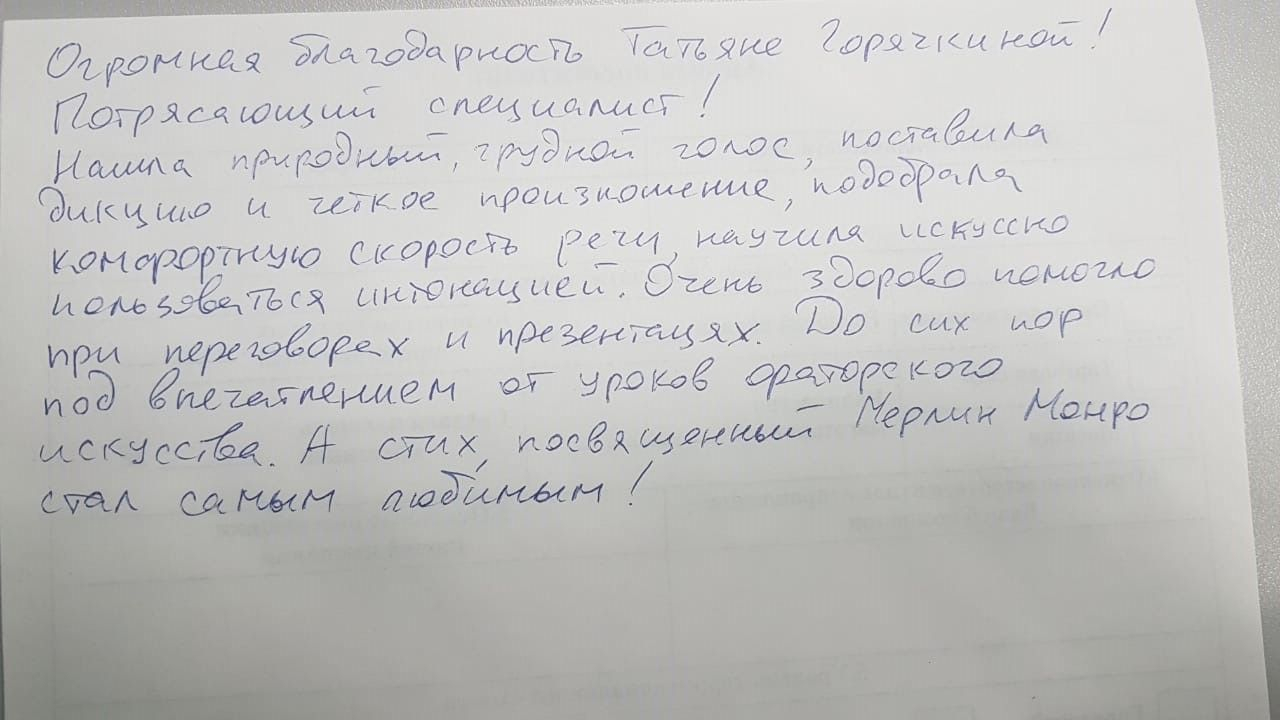 Огромная благодарность Татьяне Горячкиной!
Потрясающий специалист!
Нашла природный, грудной голос, поставила
дикцию и четкое произношение, подобрала
комфортную скорость речи, научила искуссно
пользоваться интонацией. Очень здорово помогло
при переговорах и презентациях. До сих пор
под впечатлением от уроков ораторского
искусства. А стих, посвященный Мерлин Монро
стал самым любимым!